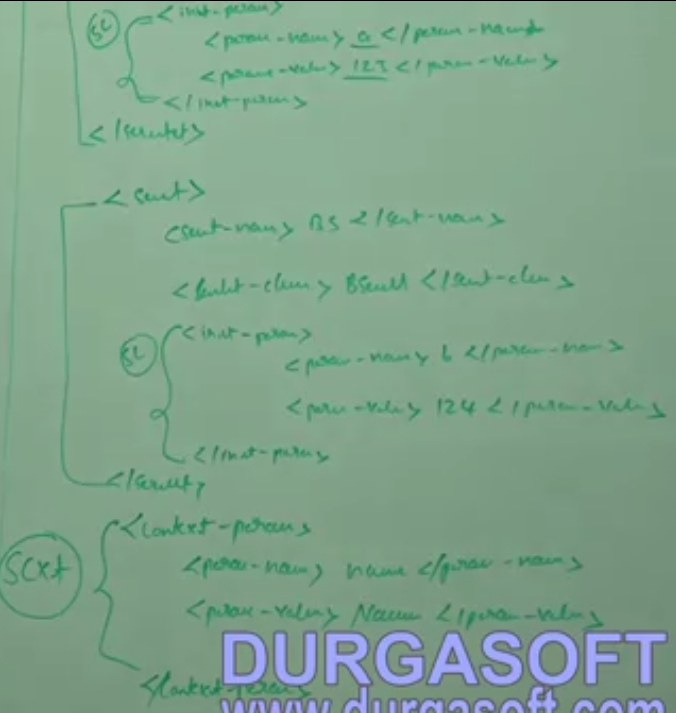 <init-param>
SC
<param-name> a </param-name>
<param-value> 123 </param-value>
</init-param>
</servlet>
<servlet>
<servlet-name> BS </servlet-name>
<servlet-class> BServlet </servlet-class>
<init-param>
SC
<param-name> b </param-name>
<param-value> 124 </param-value>
</init-param>
</servlet>
<context-param>
SCxt
<param-name> name </param-name>
<param-value> </param-value>
</context-param>
DURGASOFT
www.durgasoft.com